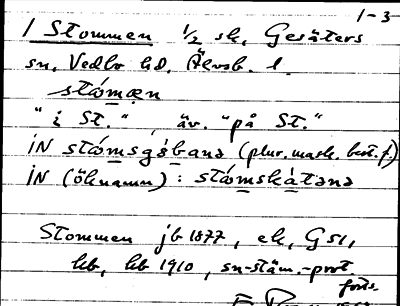 1-3
1 Stommen 1/2 sk, Gesäters
sn, Vedbo hd, Älvsb. l.
stómæn
"i St.", äv. "på St."
IN stómsgúbana (plur. mask. best. f.)
IN (öknamn): stómskátana
Stommen jb 1877, ek, GS1,
kb, lb 1910, sn-stäm.-prot
forts.